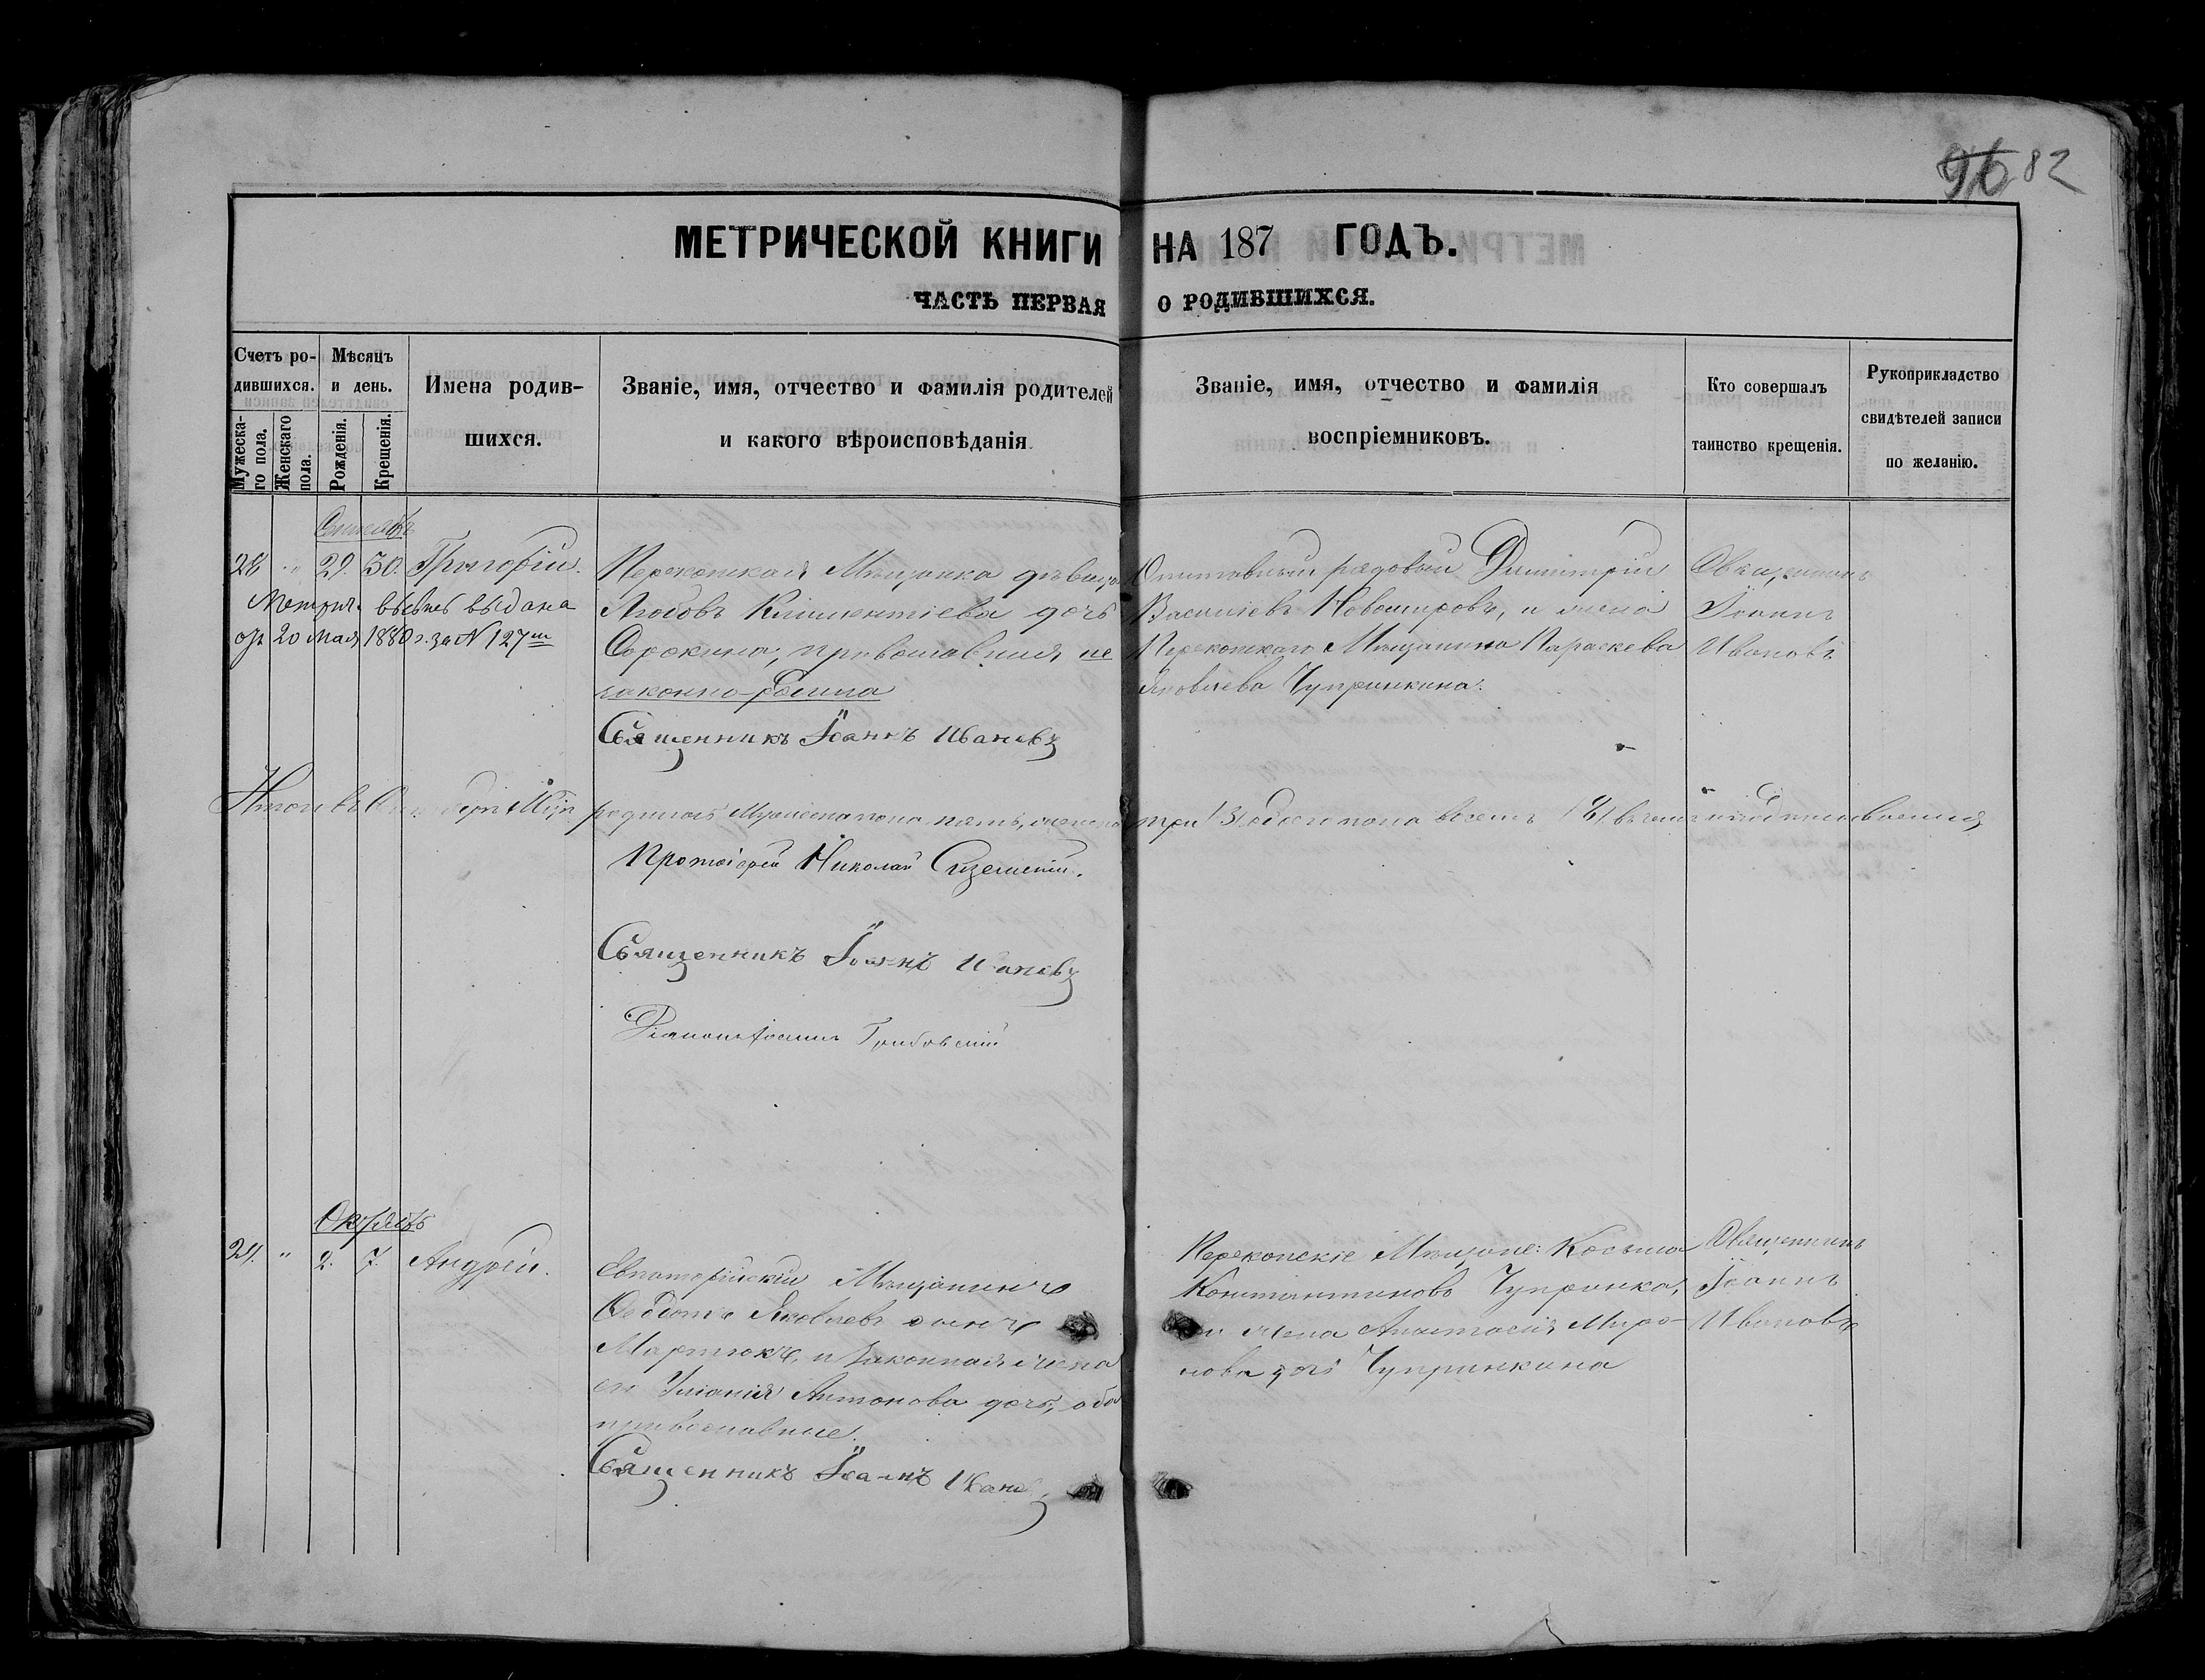 96 82
МЕТРИЧЕСКОЙ КНИГИ НА 187 ГОДЪ.
ЧАСТЬ ПЕРВАЯ О РОДИВШИХСЯ.
Счетъ ро-
дившихся.
Мужеска-
го пола.
Женскаго
пола.
Мѣсяцъ
и день.
Рожденія.
Крещенія.
Имена родив-
шихся.
Званіе, имя, отчество и фамилія родителей
и какого вѣроисповѣданія
Званіе, имя, отчество и фамилія
воспріемниковъ.
Кто совершалъ
таинство крещенія.
Рукоприкладство
свидѣтелей записи
по желанію.
28 " 29. 30. Григорій.
Метрич. выпись выдана
20 мая 1880 г. за N 127
Перекопская Мѣщанка дѣвица
Любовь дочь
Сорокина, православная не
законно
Священникъ Іоаннъ Ивановъ
Отставный рядовый Димитрій
Василіевъ и жена
Перекопскаго Мѣщанина Параскева
Яковлева Чупринкина.
Священникъ
Іоаннъ
Ивановъ
Итого въ родилось Мужеска пола пять, женска три (3) обоего пола восемь (8) въ чемъ и подписываемся
Протоіерей Николай
Священникъ Іоаннъ Ивановъ
Октябрь
29. " 2. 7. Андрей.
Евпаторійскій Мѣщанинъ
Яковлевъ сынъ
Мартюкъ, и законная жена
его Уліанія Антонова дочь, оба
православные.
Священникъ Іоаннъ Ивановъ
Перекопскіе Мѣщане: Косьма
Константиновъ Чупринка,
и жена Анастасія Миро-
нова дочь Чупринкина
Священникъ
Іоаннъ
Ивановъ